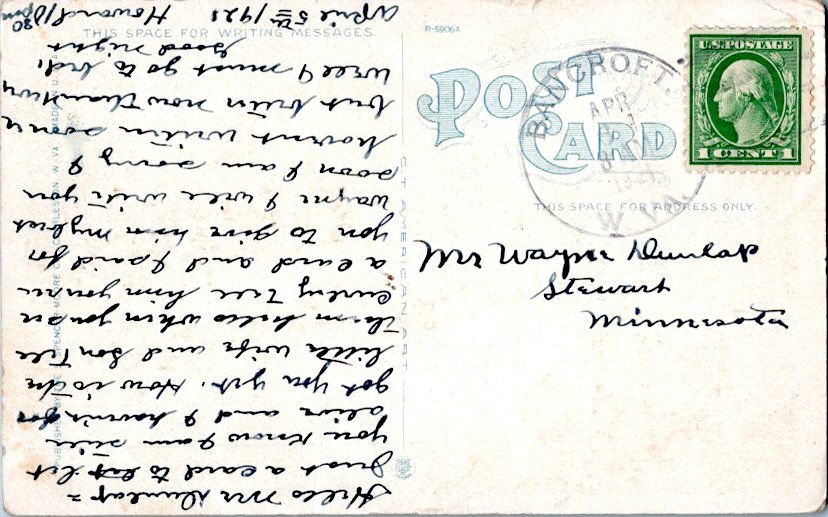 THIS SPACE FOR WRITING MESSAGES.
Hello Mr Dunlap =
Just a card to let
you know I am still
alive and I havin for
got you yet. How is the
little wife and son Tell
them hello when you see
Curley Tell him you
a card and I said for
you to give him my best
Wayne I will writ you
soon I am sorry I
havent writin sooner
but now than
Well I must go to bed.
Good night
April 5th/1921 Howard/D
30 pm
PUBLISHED BY THE SPENCER MOORE CO. CHARLESTON, W. VA.
C.T. AMERICAN ART
R-59064
POST
CARD
BANCROFT.
APR
W. VA.
U.S. POSTAGE
1 CENT 1
THIS SPACE FOR ADDRESS ONLY.
Mr Wayne Dunlap
Stewart
Minnesota